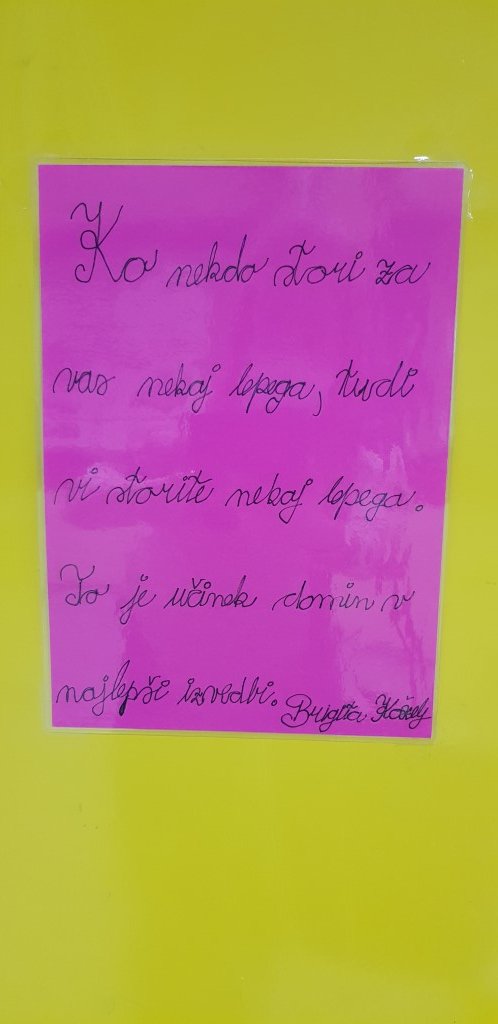 Ko nekdo stori za
vas nekaj lepega, tudi
vi storite nekaj lepega.
To je učinek domin v
najlepši izvedbi. Brigita